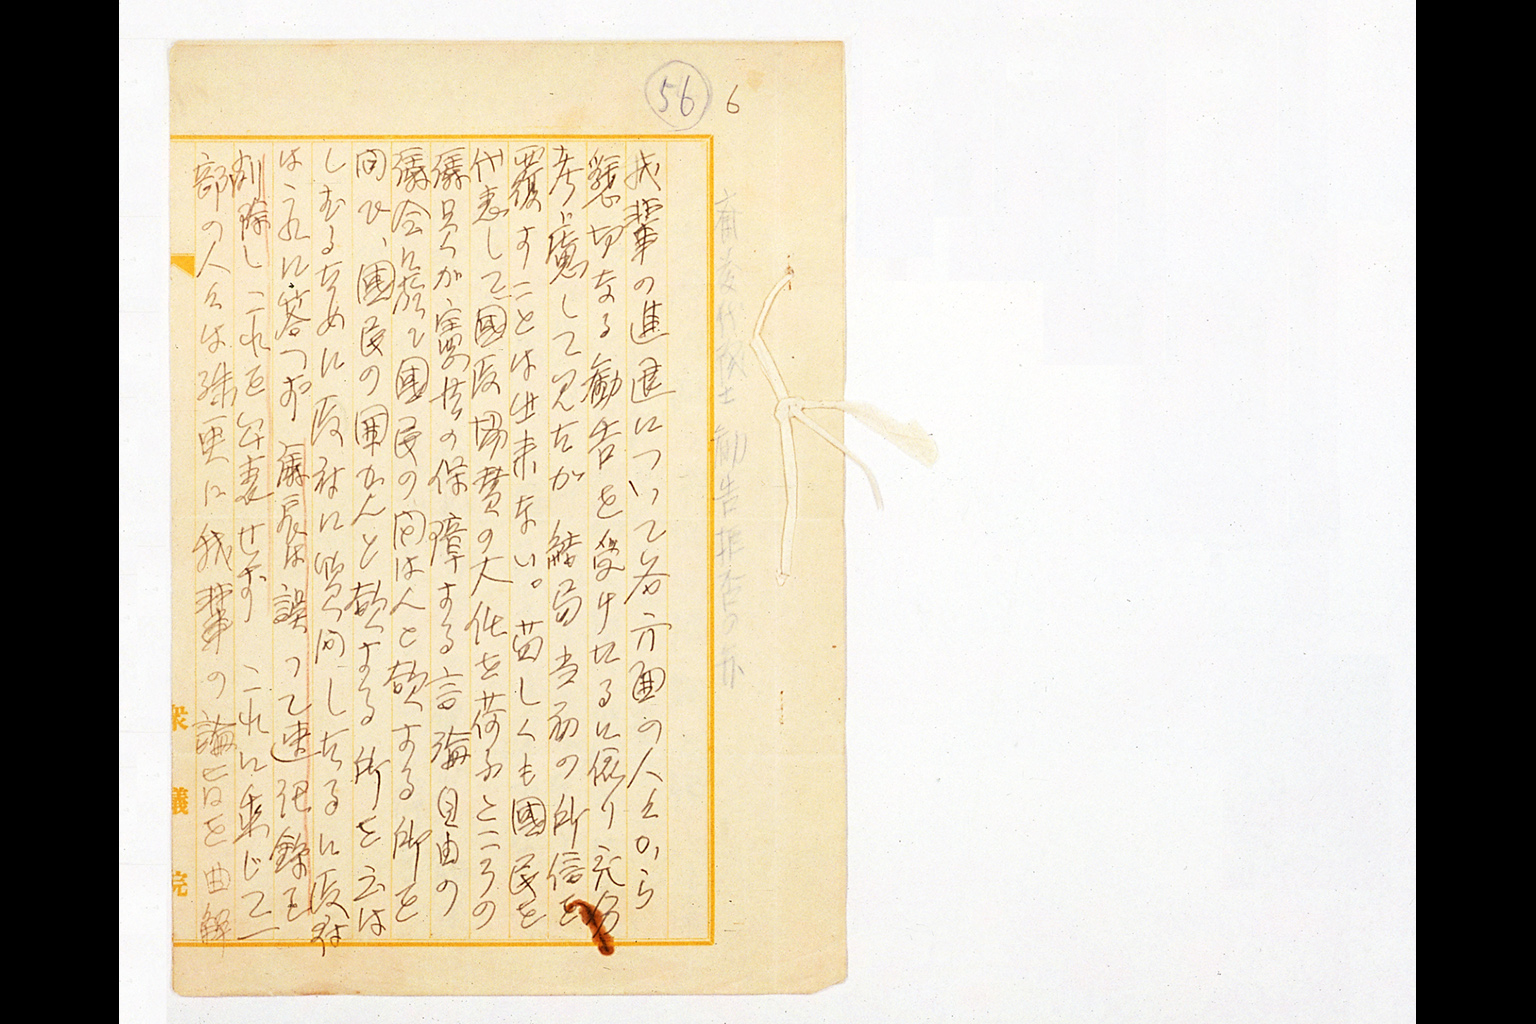 56
6
斎藤代議士 勧告拒否の弁
我輩の進退について各方面の人々から
懇切なる勧告を受けたるに依り充分
考慮して見たが 結局当初の所信を
覆すことは出来ない。苟しくも國民を
代表して國政協賛の大任を荷ふところの
議員が憲法の保障する言論自由の
議会に於て國民の問はんと欲する所を
問ひ、國民の聞かんと欲する所を云は
しむるために政府に質問したるに政府
は之に答へず 議長は誤って速記録を
削除しこれを公表せず これに乗じて一
部の人々は殊更に我輩の論旨を曲解
衆議院